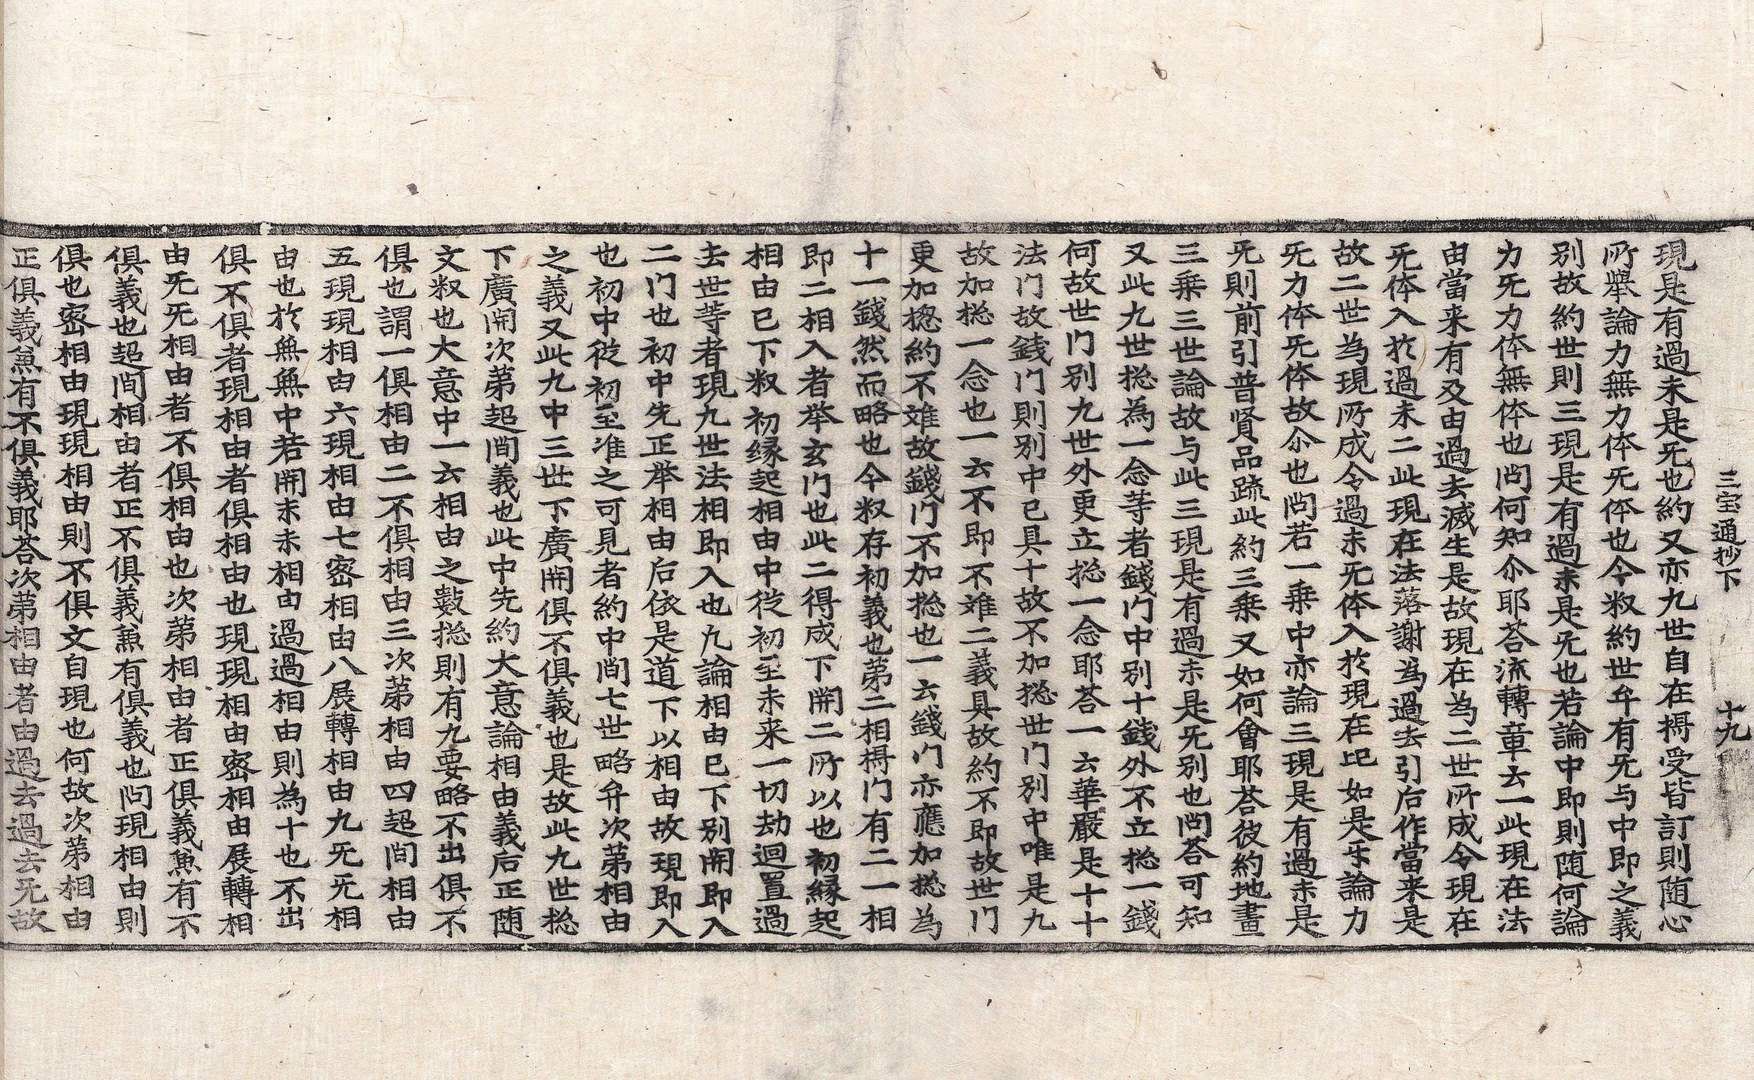 三宝通抄下　十九
現是有過未是旡也約又亦九世自在㝵受皆訂則随心
所舉論力無力体旡体也今叙約世年有旡与中即之義
別故約世則三現是有過未是旡也若論中即則随何論
力旡力体無体也问何知尒耶荅流轉章云一此現在法
由當来有及由過去滅生是故現在為二世所成令現在
旡体入於過未二此現在法落謝為過去引后作當来是
故二世為現所成令過未旡体入於現在㐌如是乐論力
旡力体旡体故尒也问若一乗中亦論三現是有過未是
旡則前引普賢品䟽此約三乗又如何會耶荅彼約地畫
三乗三世論故与此三現是有過未是旡別也问荅可知
又此九世捴為一念等者錢门中別十錢外不立捴一錢
何故世门別九世外更立捴一念耶荅一云華嚴是十十
法门故錢门則別中已具十故不加捴世门別中唯是九
故加捴一念也一云不即不难二義具故約不即故世门
更加捴約不难故錢门不加捴也一云錢门亦應加捴為
十一錢然而略也今叙存初義也第二相㝵门有二一相
即二相入者举玄门也此二得成下開二所以也初縁起
相由已下叙初縁起相由中従初至未来一切劫迴置過
去世等者現九世法相即入也九論相由已下別開即入
二门也初中先正举相由后依是道下以相由故現即入
也初中従初至准之可見者約中间七世略弁次第相由
之義又此九中三世下廣開俱不俱義也是故此九世捴
下廣開次第超间義也此中先約大意論相由義后正随
文叙也大意中一云相由之數捴則有九要略不出俱不
俱也謂一俱相由二不俱相由三次第相由四超间相由
五現現相由六現相由七密相由八展轉相由九旡旡相
由也於無無中若開未未相由過過相由則為十也不出
俱不俱者現相由者俱相由也現現相由密相由展轉相
由旡旡相由者不俱相由也次第相由者正俱義魚有不
俱義也超间相由者正不俱義魚有俱義也问現相由則
俱也密相由現現相由則不俱文自現也何故次第相由
正俱義魚有不俱義耶荅次第相由者由過去過去旡故